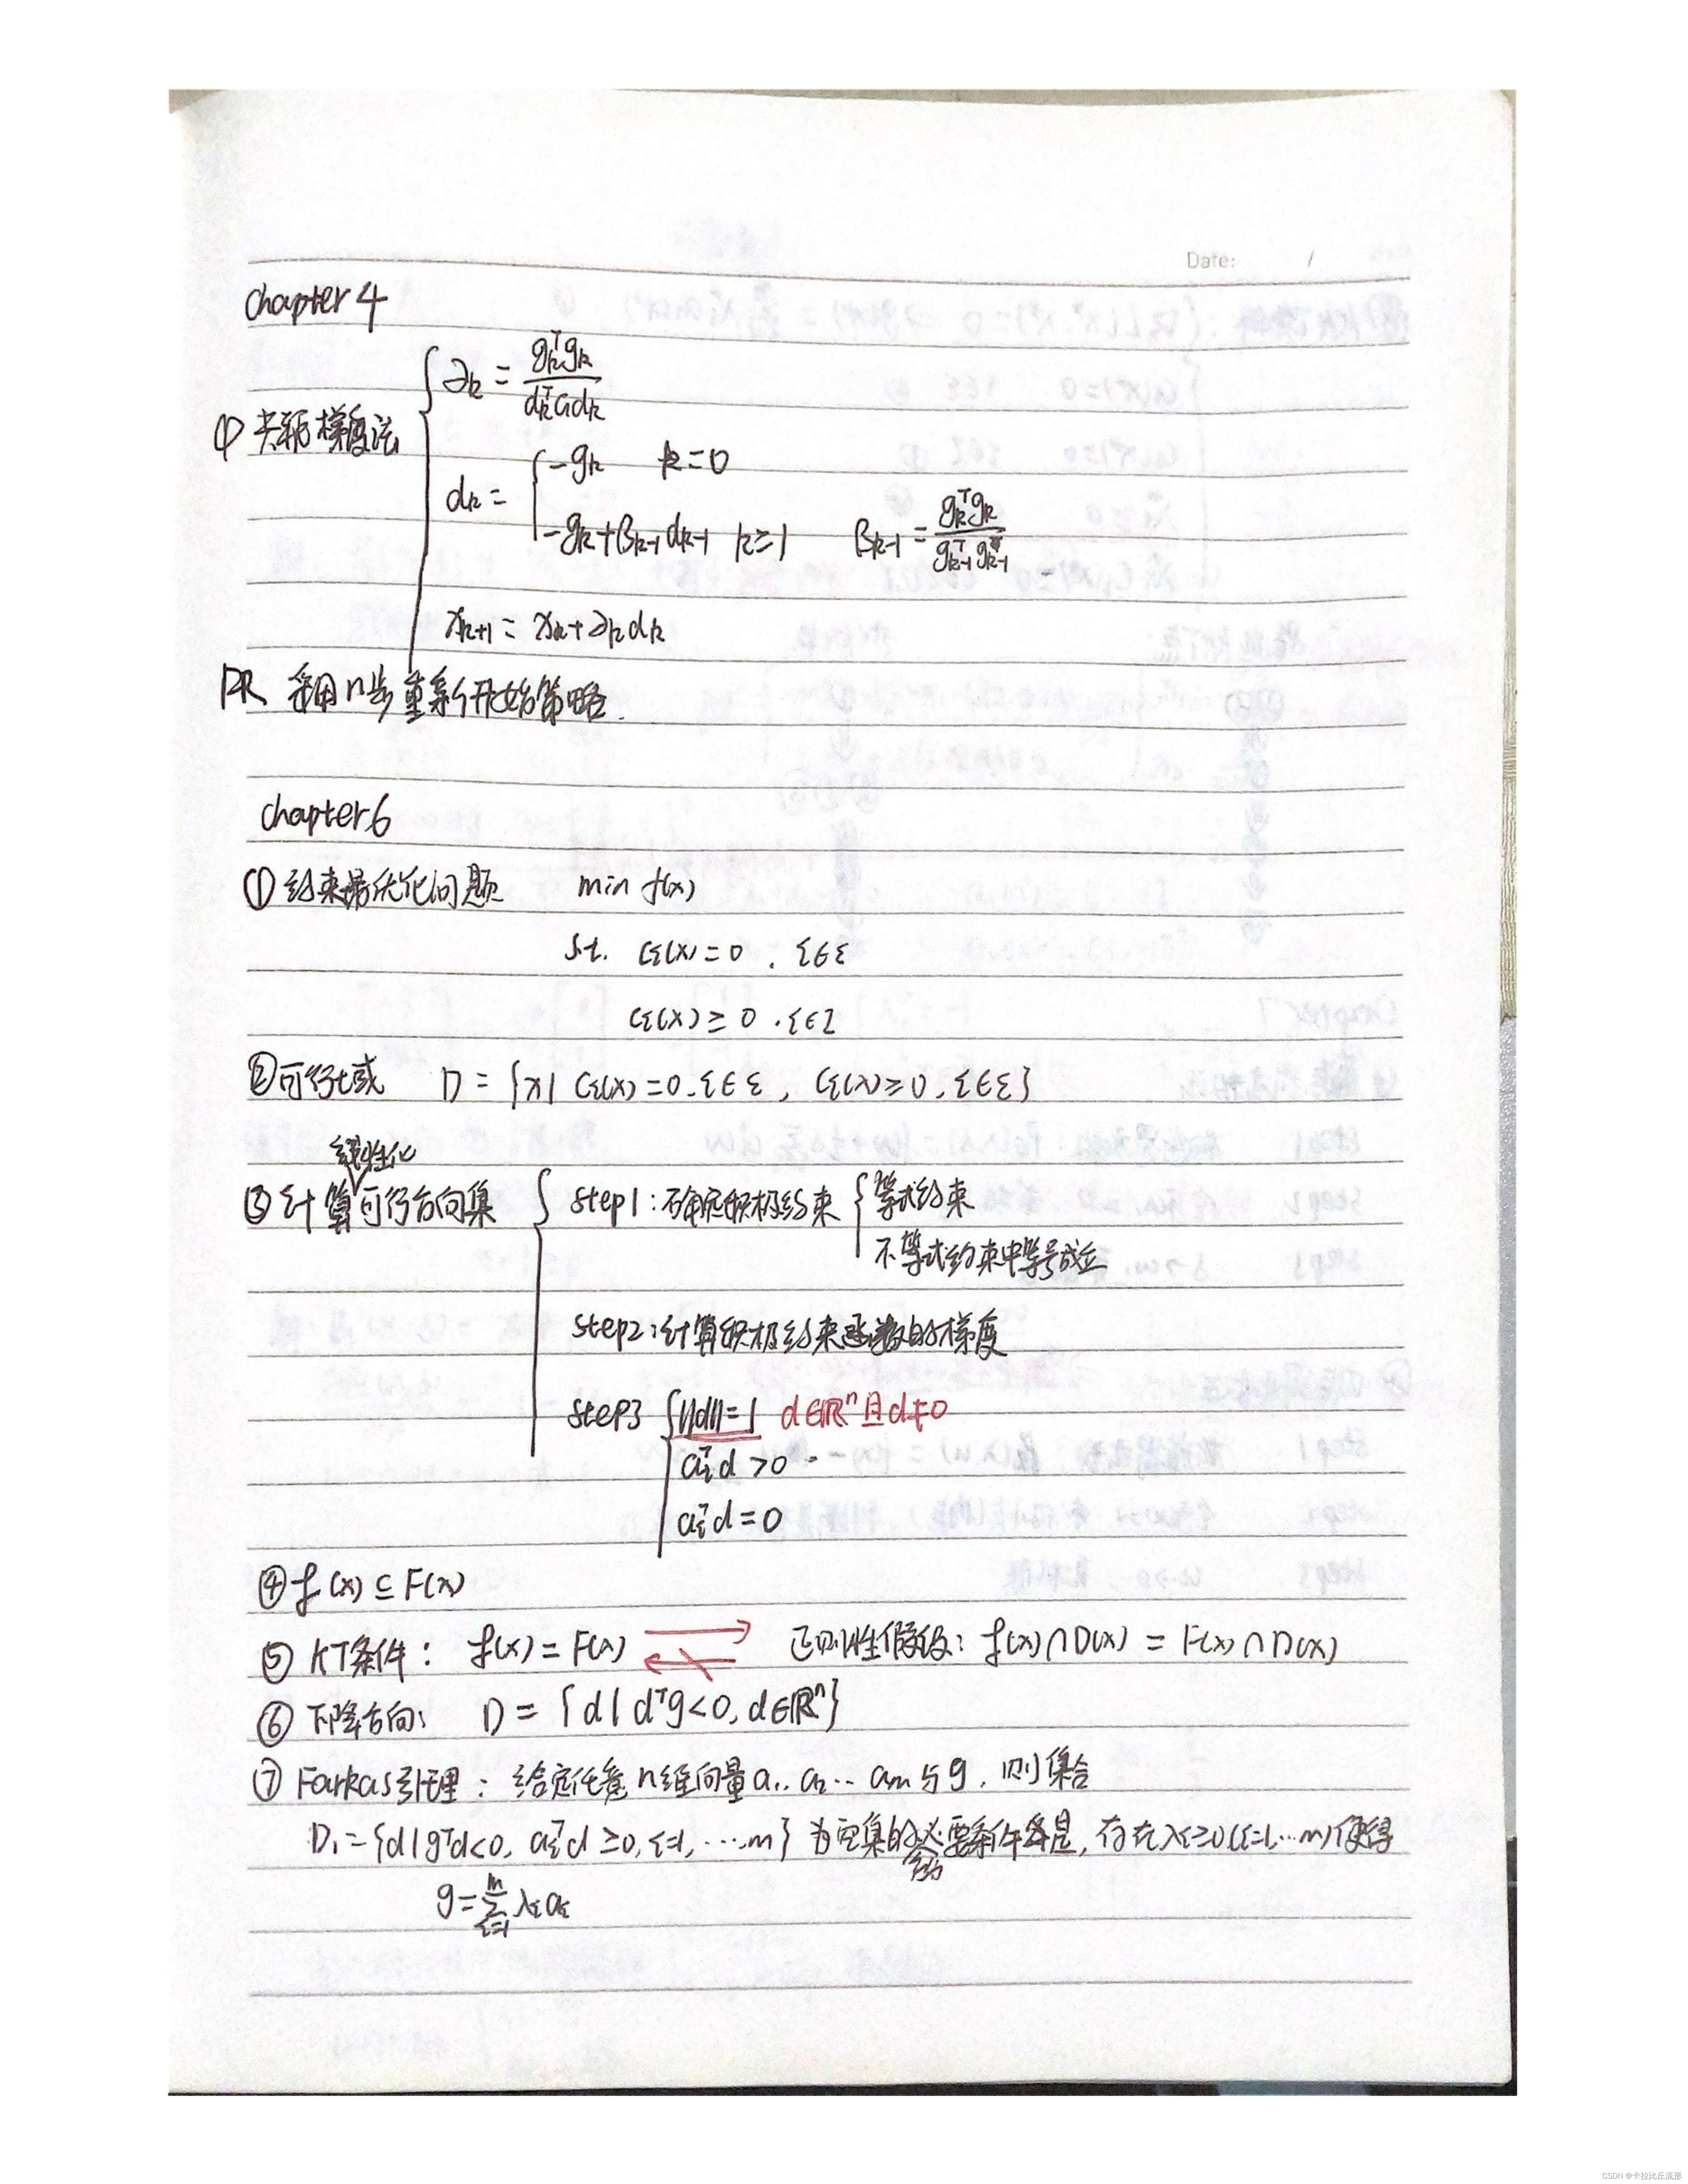 Date: /
chapter 4
① 共轭梯度法 { ∂k = gkᵀgk / dkᵀGdk
dk = { -gk k=0
-gk+βk-1dk-1 k≥1 βk-1 = gkᵀgk / gk-1ᵀgk-1
xk+1 = xk+∂kdk
PR 采用n步重新开始策略.
chapter 6
① 约束最优化问题 min f(x)
s.t. ci(x)=0 . i∈ε
ci(x)≥0 . i∈I
② 可行域 D = {x| ci(x)=0. i∈ε, ci(x)≥0, i∈ε}
线性化
③ 计算可行方向集 { step1:确定积极约束 { 等式约束
不等式约束中等号成立
step2:计算积极约束函数的梯度
step3 { ||d||=1 d∈ℝⁿ且d≠0
aiᵀd >0
aiᵀd =0
④ f(x) ⊆ F(x)
⑤ KT条件: f(x) = F(x) 正则性假设: f(x)∩D(x) = F(x)∩D(x)
⑥ 下降方向: D = {d| dᵀg<0, d∈ℝⁿ}
⑦ Farkas引理: 给定任意n维向量a1, a2… am与g, 则集合
D1={d|gᵀd<0, aiᵀd ≥0, i=1, …, m} 为空集的必要条件是, 存在λi≥0(i=1,…m)使得
g=∑ᵐi=1 λiai
CSDN @卡拉比丘流形